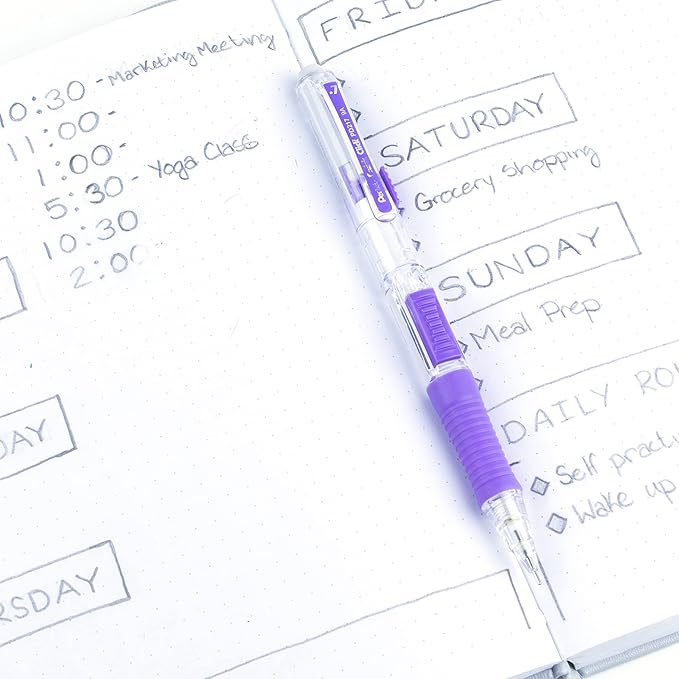 10:30 - Marketing Meeting
11:00 -
1:00 -
5:30 - Yoga Class
10:30
2:00
DAY
RSDAY
FRID
SATURDAY
Grocery shopping
SUNDAY
Meal Prep
DAILY RO
Self practi
Wake up
Click PD217 9A